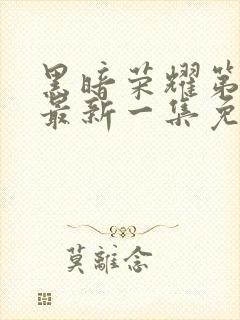 黑暗荣耀第
最新一集免
莫離念